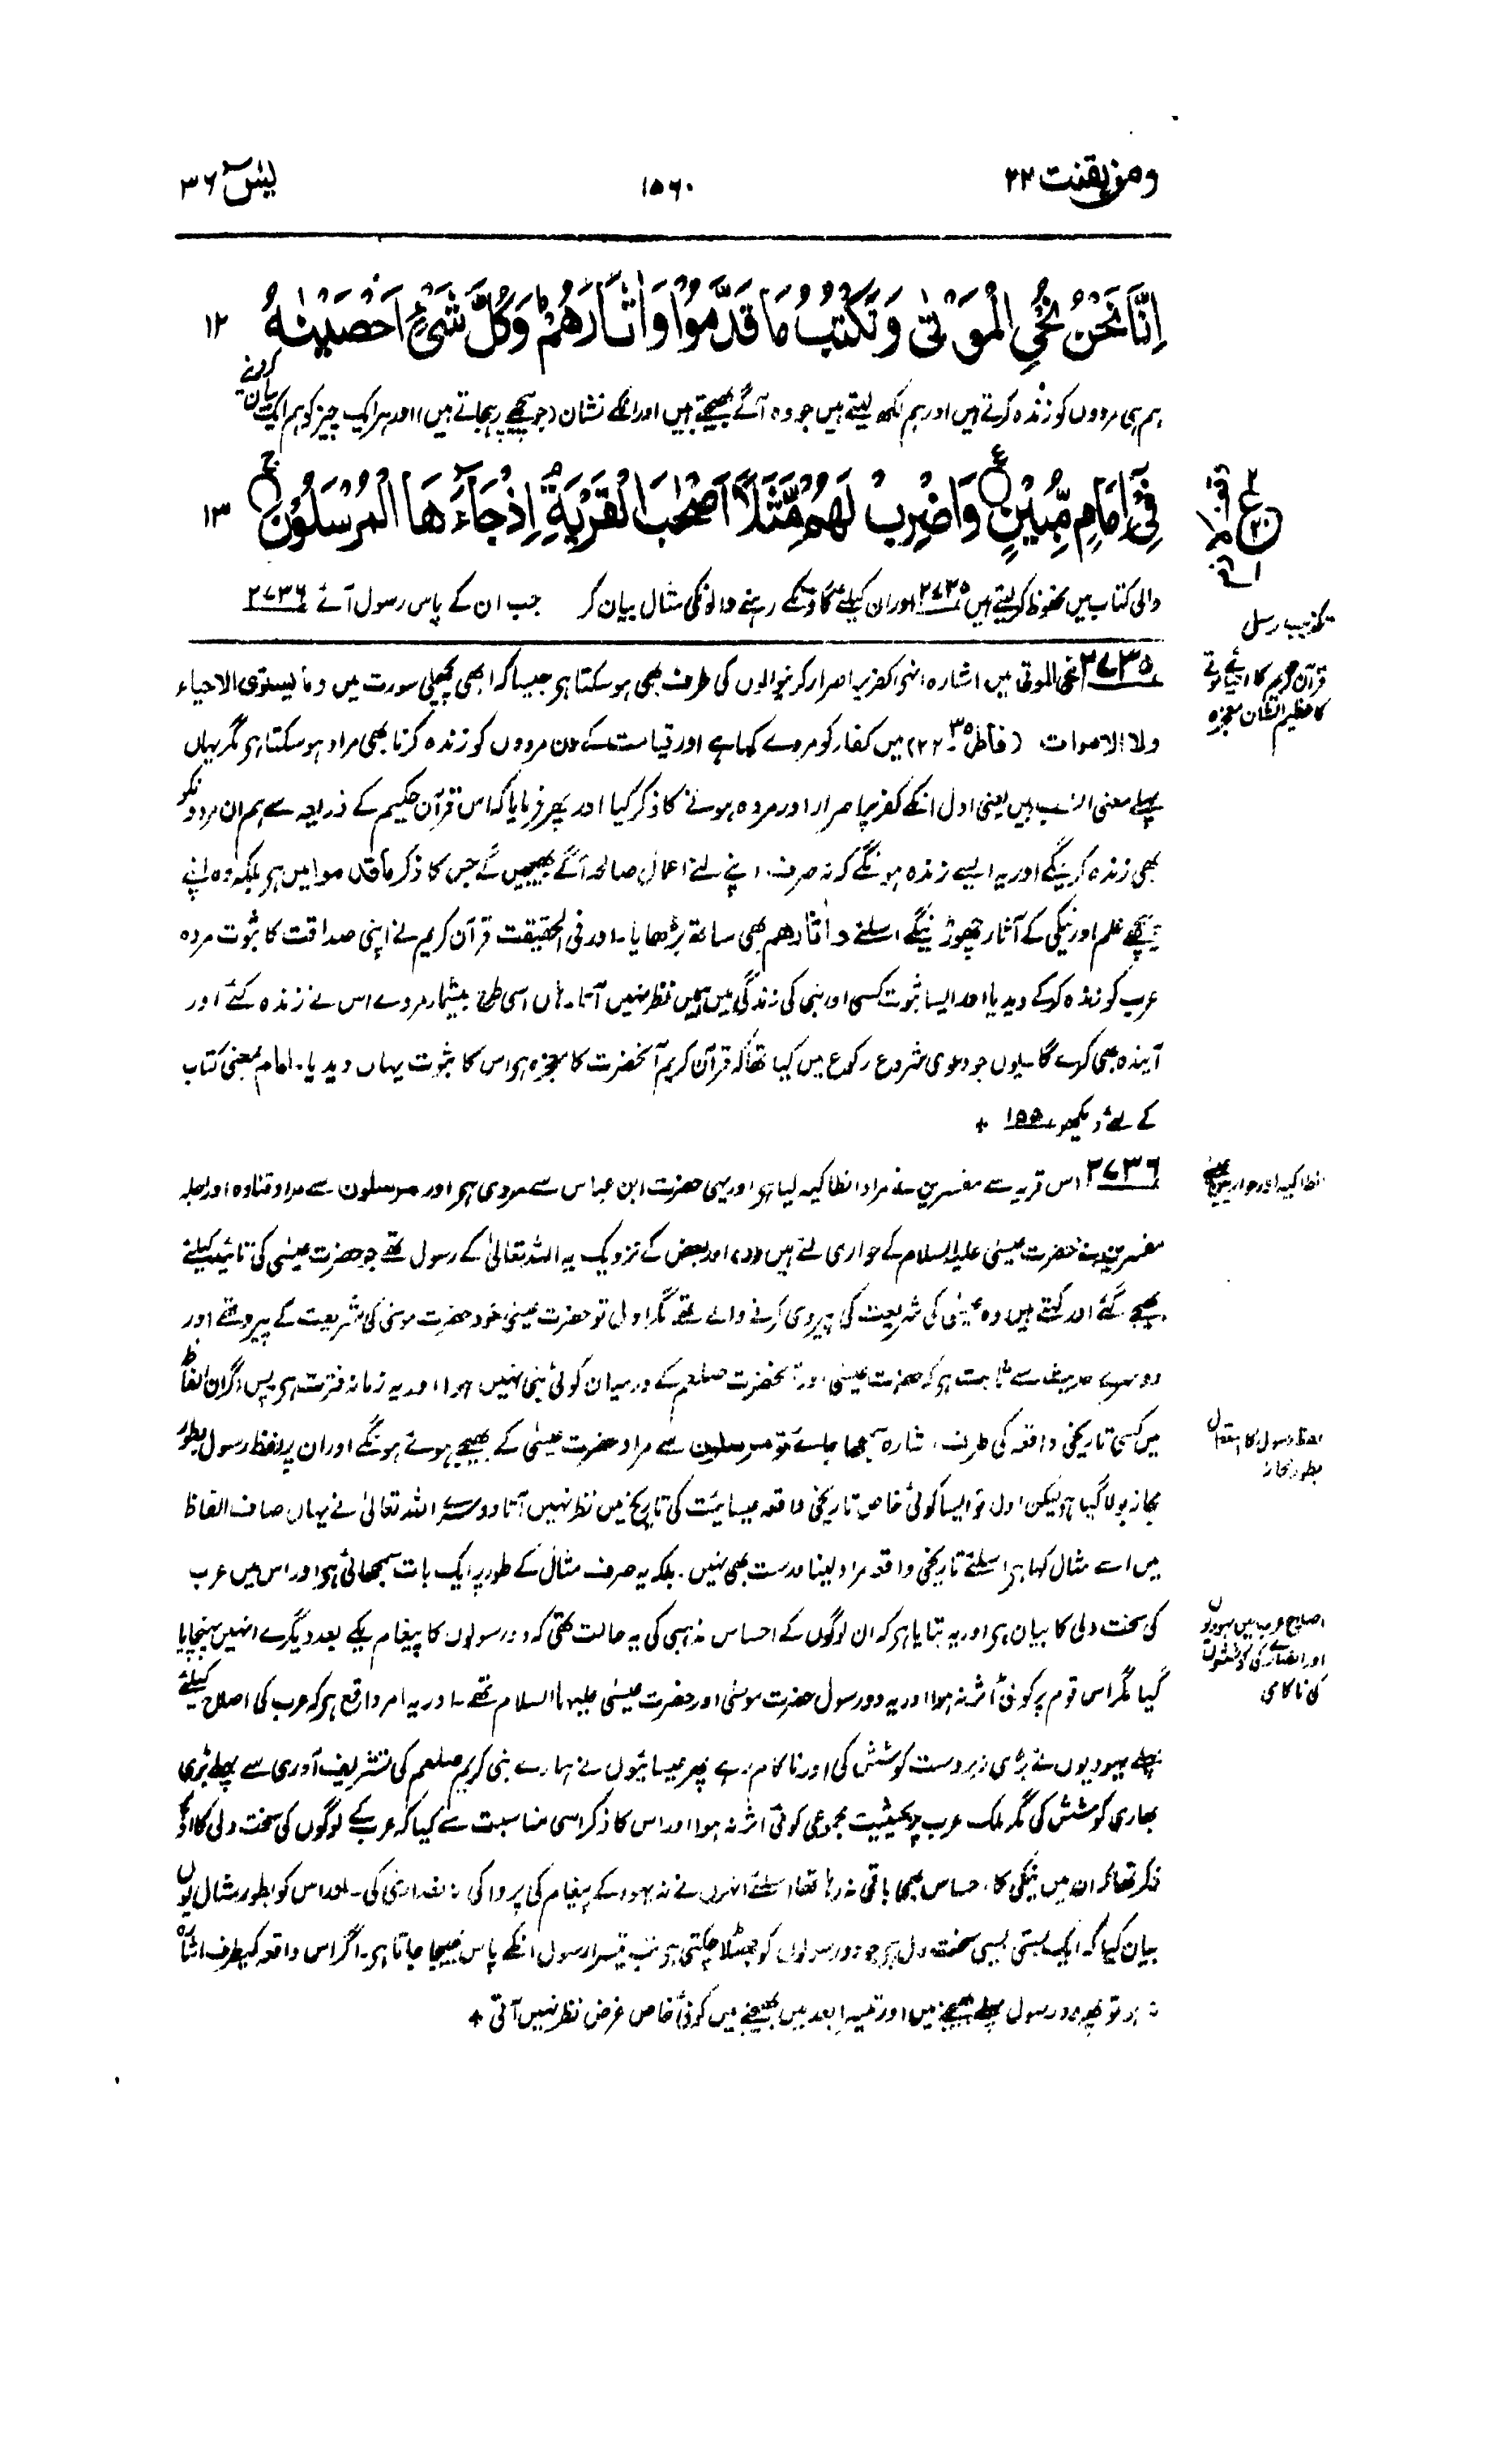 ومن یقنت ۲۲
۱۵۶۰
یٰسٓ ۳۶
اِنَّا نَحْنُ نُحْیِ الْمَوْتٰی وَنَكْتُبُ مَا قَدَّمُوْا وَاٰثَارَهُمْ ؕ وَكُلَّ شَیْءٍ اَحْصَیْنٰهُ ۱۲
ہم ہی مردوں کو زندہ کرتے ہیں اور ہم لکھ لیتے ہیں جو وہ آگے بھیجتے ہیں اور انکے نشان (جو پیچھے رہجاتے ہیں) اور ہر ایک چیز کو ہم ایک بیان کرنے
فِیْۤ اِمَامٍ مُّبِیْنٍ ۠ وَاضْرِبْ لَهُمْ مَّثَلًا اَصْحٰبَ الْقَرْیَةِ ۘ اِذْ جَآءَهَا الْمُرْسَلُوْنَ ۚ ۱۳
والی کتاب میں محفوظ کرلیتے ہیں ۲۷۳۵ اور ان کیلئے گاؤں کے رہنے والونکی مثال بیان کر جب ان کے پاس رسول آئے ۲۷۳۶
تکذیب رسل
قرآن کریم کا احیائے موتے
کا عظیم الشان معجزہ
۲۷۳۵ نحی الموتی میں اشارہ انہی کفر پر اصرار کرنیوالوں کی طرف بھی ہوسکتا ہے جیسا کہ ابھی پچھلی سورت میں وما یستوی الاحیاء
ولا الاموات (فاطر ۳۵-۲۲) میں کفار کو مردے کہا ہے اور قیامت کے دن مردوں کو زندہ کرنا بھی مراد ہوسکتا ہے مگر یہاں
پہلے معنی انسب ہیں یعنی اول انکے کفر پر اصرار اور مردہ ہونے کا ذکر کیا اور پھر فرمایا کہ اس قرآن حکیم کے ذریعہ سے ہم ان مردونکو
بھی زندہ کرینگے اور یہ ایسے زندہ ہونگے کہ نہ صرف اپنے لئے اعمال صالحہ آگے بھیجیں گے جس کا ذکر ما قدموا میں ہے بلکہ وہ اپنے
پیچھے علم اور نیکی کے آثار چھوڑینگے اسلئے واٰثارهم بھی ساتھ بڑھایا۔ اور فی الحقیقت قرآن کریم نے اپنی صداقت کا ثبوت مردہ
عرب کو زندہ کرکے دیدیا اور ایسا ثبوت کسی اور نبی کی زندگی میں ہمیں نظر نہیں آتا۔ ہاں اسی طرح بیشمار مردے اس نے زندہ کئے اور
آیندہ بھی کرے گا۔ یوں جو دعوی شروع رکوع میں کیا تھا کہ قرآن کریم آنحضرت کا معجزہ ہے اس کا ثبوت یہاں دیدیا۔ امام بمعنی کتاب
کے لئے دیکھو ۱۵۵ +
انطاکیہ اور حواریین
۲۷۳۶ اس قریہ سے مفسرین نے مراد انطاکیہ لیا ہے اور یہی حضرت ابن عباس سے مروی ہے اور مرسلون سے مراد قتادہ اور اجلہ
مفسرین نے حضرت عیسٰی علیہ السلام کے حواری لئے ہیں (ر) اور بعض کے نزدیک یہ اللہ تعالٰی کے رسول تھے جو حضرت عیسٰی کی تائید کیلئے
بھیجے گئے اور کہتے ہیں وہ عیسٰی کی شریعت کی پیروی کرنے والے تھے مگر اول تو حضرت عیسٰی خود حضرت موسٰی کی شریعت کے پیرو تھے اور
دوسرے حدیث سے ثابت ہے کہ حضرت عیسٰی اور آنحضرت صلعم کے درمیان کوئی نبی نہیں ہوا، اور یہ زمانہ فترت ہے پس اگر ان الفاظ
لفظ رسول کا استعمال
بطور مجاز
میں کسی تاریخی واقعہ کی طرف اشارہ سمجھا جائے تو مرسلین سے مراد حضرت عیسٰی کے بھیجے ہوئے ہونگے اور ان پر لفظ رسول بطور
مجاز بولا گیا ہے لیکن اول تو ایسا کوئی خاص تاریخی واقعہ عیسائیت کی تاریخ میں نظر نہیں آتا دوسرے اللہ تعالٰی نے یہاں صاف الفاظ
میں اسے مثال کہا ہے اسلئے تاریخی واقعہ مراد لینا درست بھی نہیں۔ بلکہ یہ صرف مثال کے طور پر ایک بات سمجھائی ہے اور اس میں عرب
اصلاح عرب میں یہودیوں
اور نصاریٰ کی کوششوں
کی ناکامی
کی سخت دلی کا بیان ہے اور یہ بتایا ہے کہ ان لوگوں کے احساس مذہبی کی یہ حالت تھی کہ دو رسولوں کا پیغام یکے بعد دیگرے انہیں پہنچایا
گیا مگر اس قوم پر کوئی اثر نہ ہوا اور یہ دو رسول حضرت موسٰی اور حضرت عیسٰی علیہما السلام تھے۔ اور یہ امر واقع ہے کہ عرب کی اصلاح کیلئے
پہلے یہودیوں نے بڑی زبردست کوشش کی اور ناکام رہے پھر عیسائیوں نے ہمارے نبی کریم صلعم کی تشریف آوری سے پہلے بڑی
بھاری کوشش کی مگر ملک عرب پر بحیثیت مجموعی کوئی اثر نہ ہوا اور اس کا ذکر اسی مناسبت سے کیا کہ عرب کے لوگوں کی سخت دلی کا اوپر
ذکر تھا کہ ان میں نیکی کا احساس بھی باقی نہ رہا تھا اسلئے انہوں نے نہ یہود کے پیغام کی پروا کی نہ نصاریٰ کی۔ اور اس کو بطور مثال یوں
بیان کیا کہ ایک بستی ایسی سخت دل ہے جو دو رسولوں کو جھٹلا چکتی ہے تب تیسرا رسول انکے پاس بھیجا جاتا ہے۔ اگر اس واقعہ کیطرف اشارہ
نہ ہو تو پھر دو رسول پہلے بھیجنے میں اور تیسرا بعد میں بھیجنے میں کوئی خاص غرض نظر نہیں آتی +